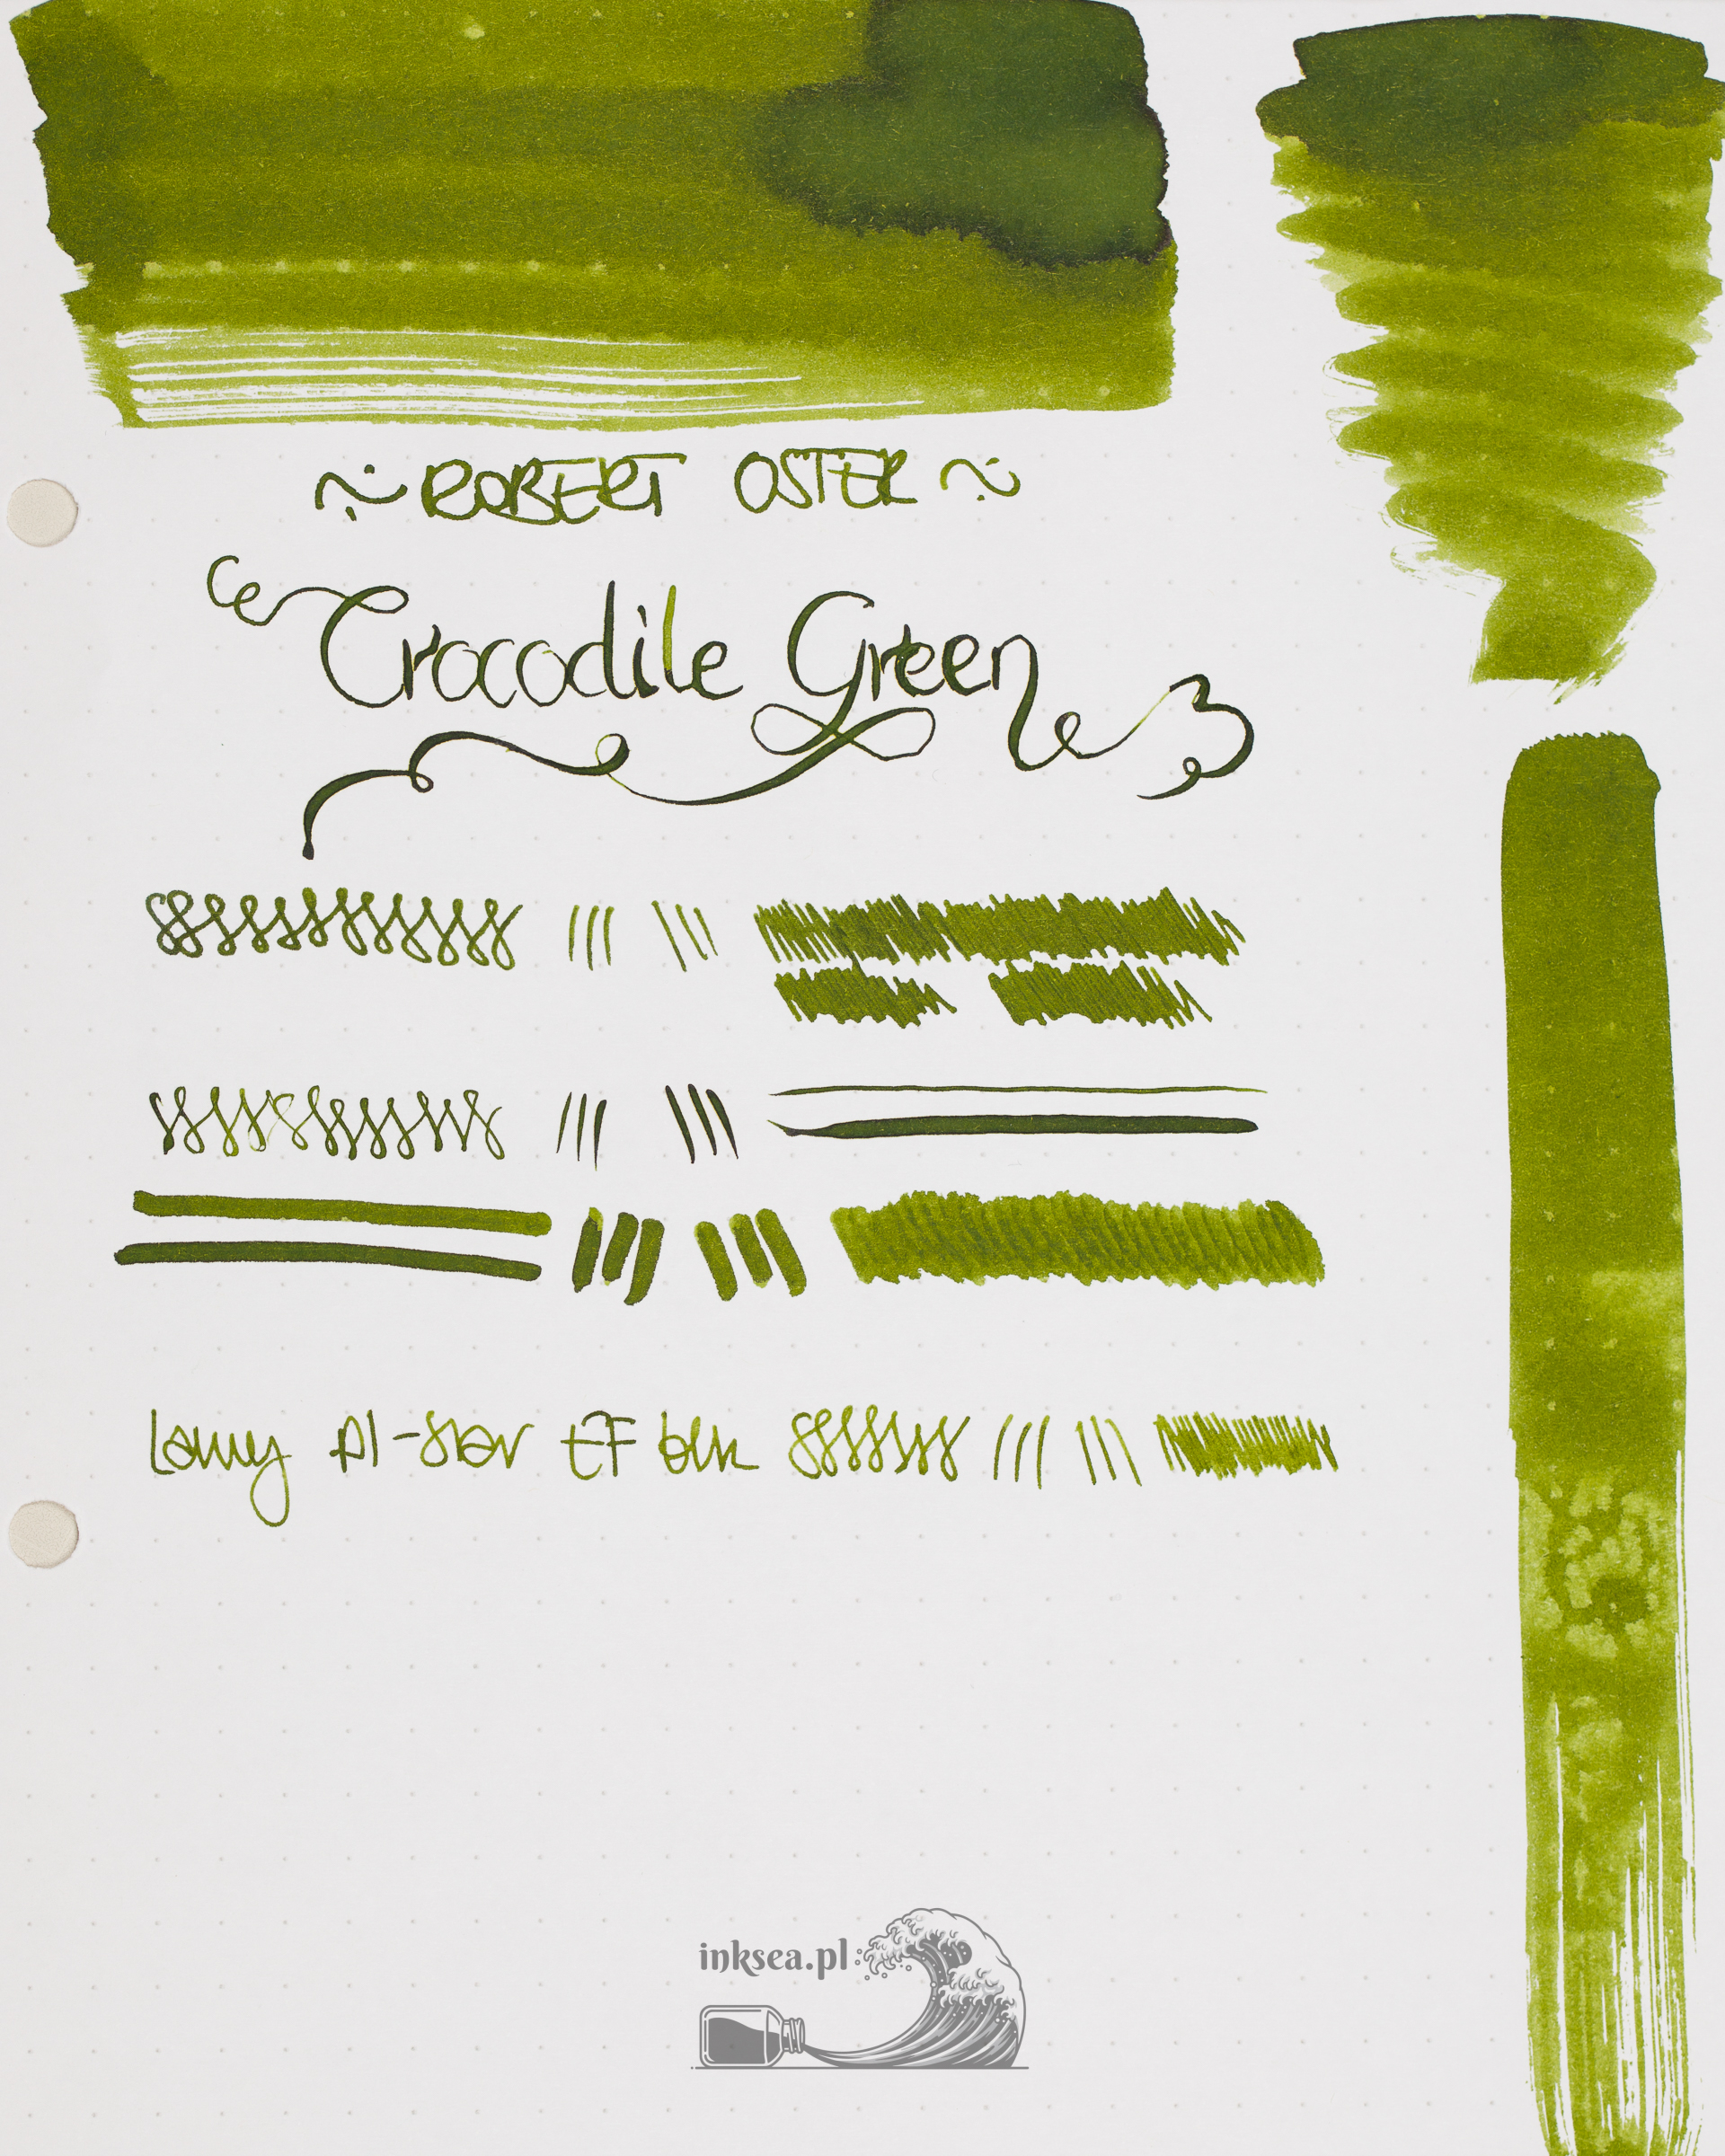 ~ ROBERT OSTER ~
Crocodile Green
Lamy Al-Star EF blk
inksea.pl